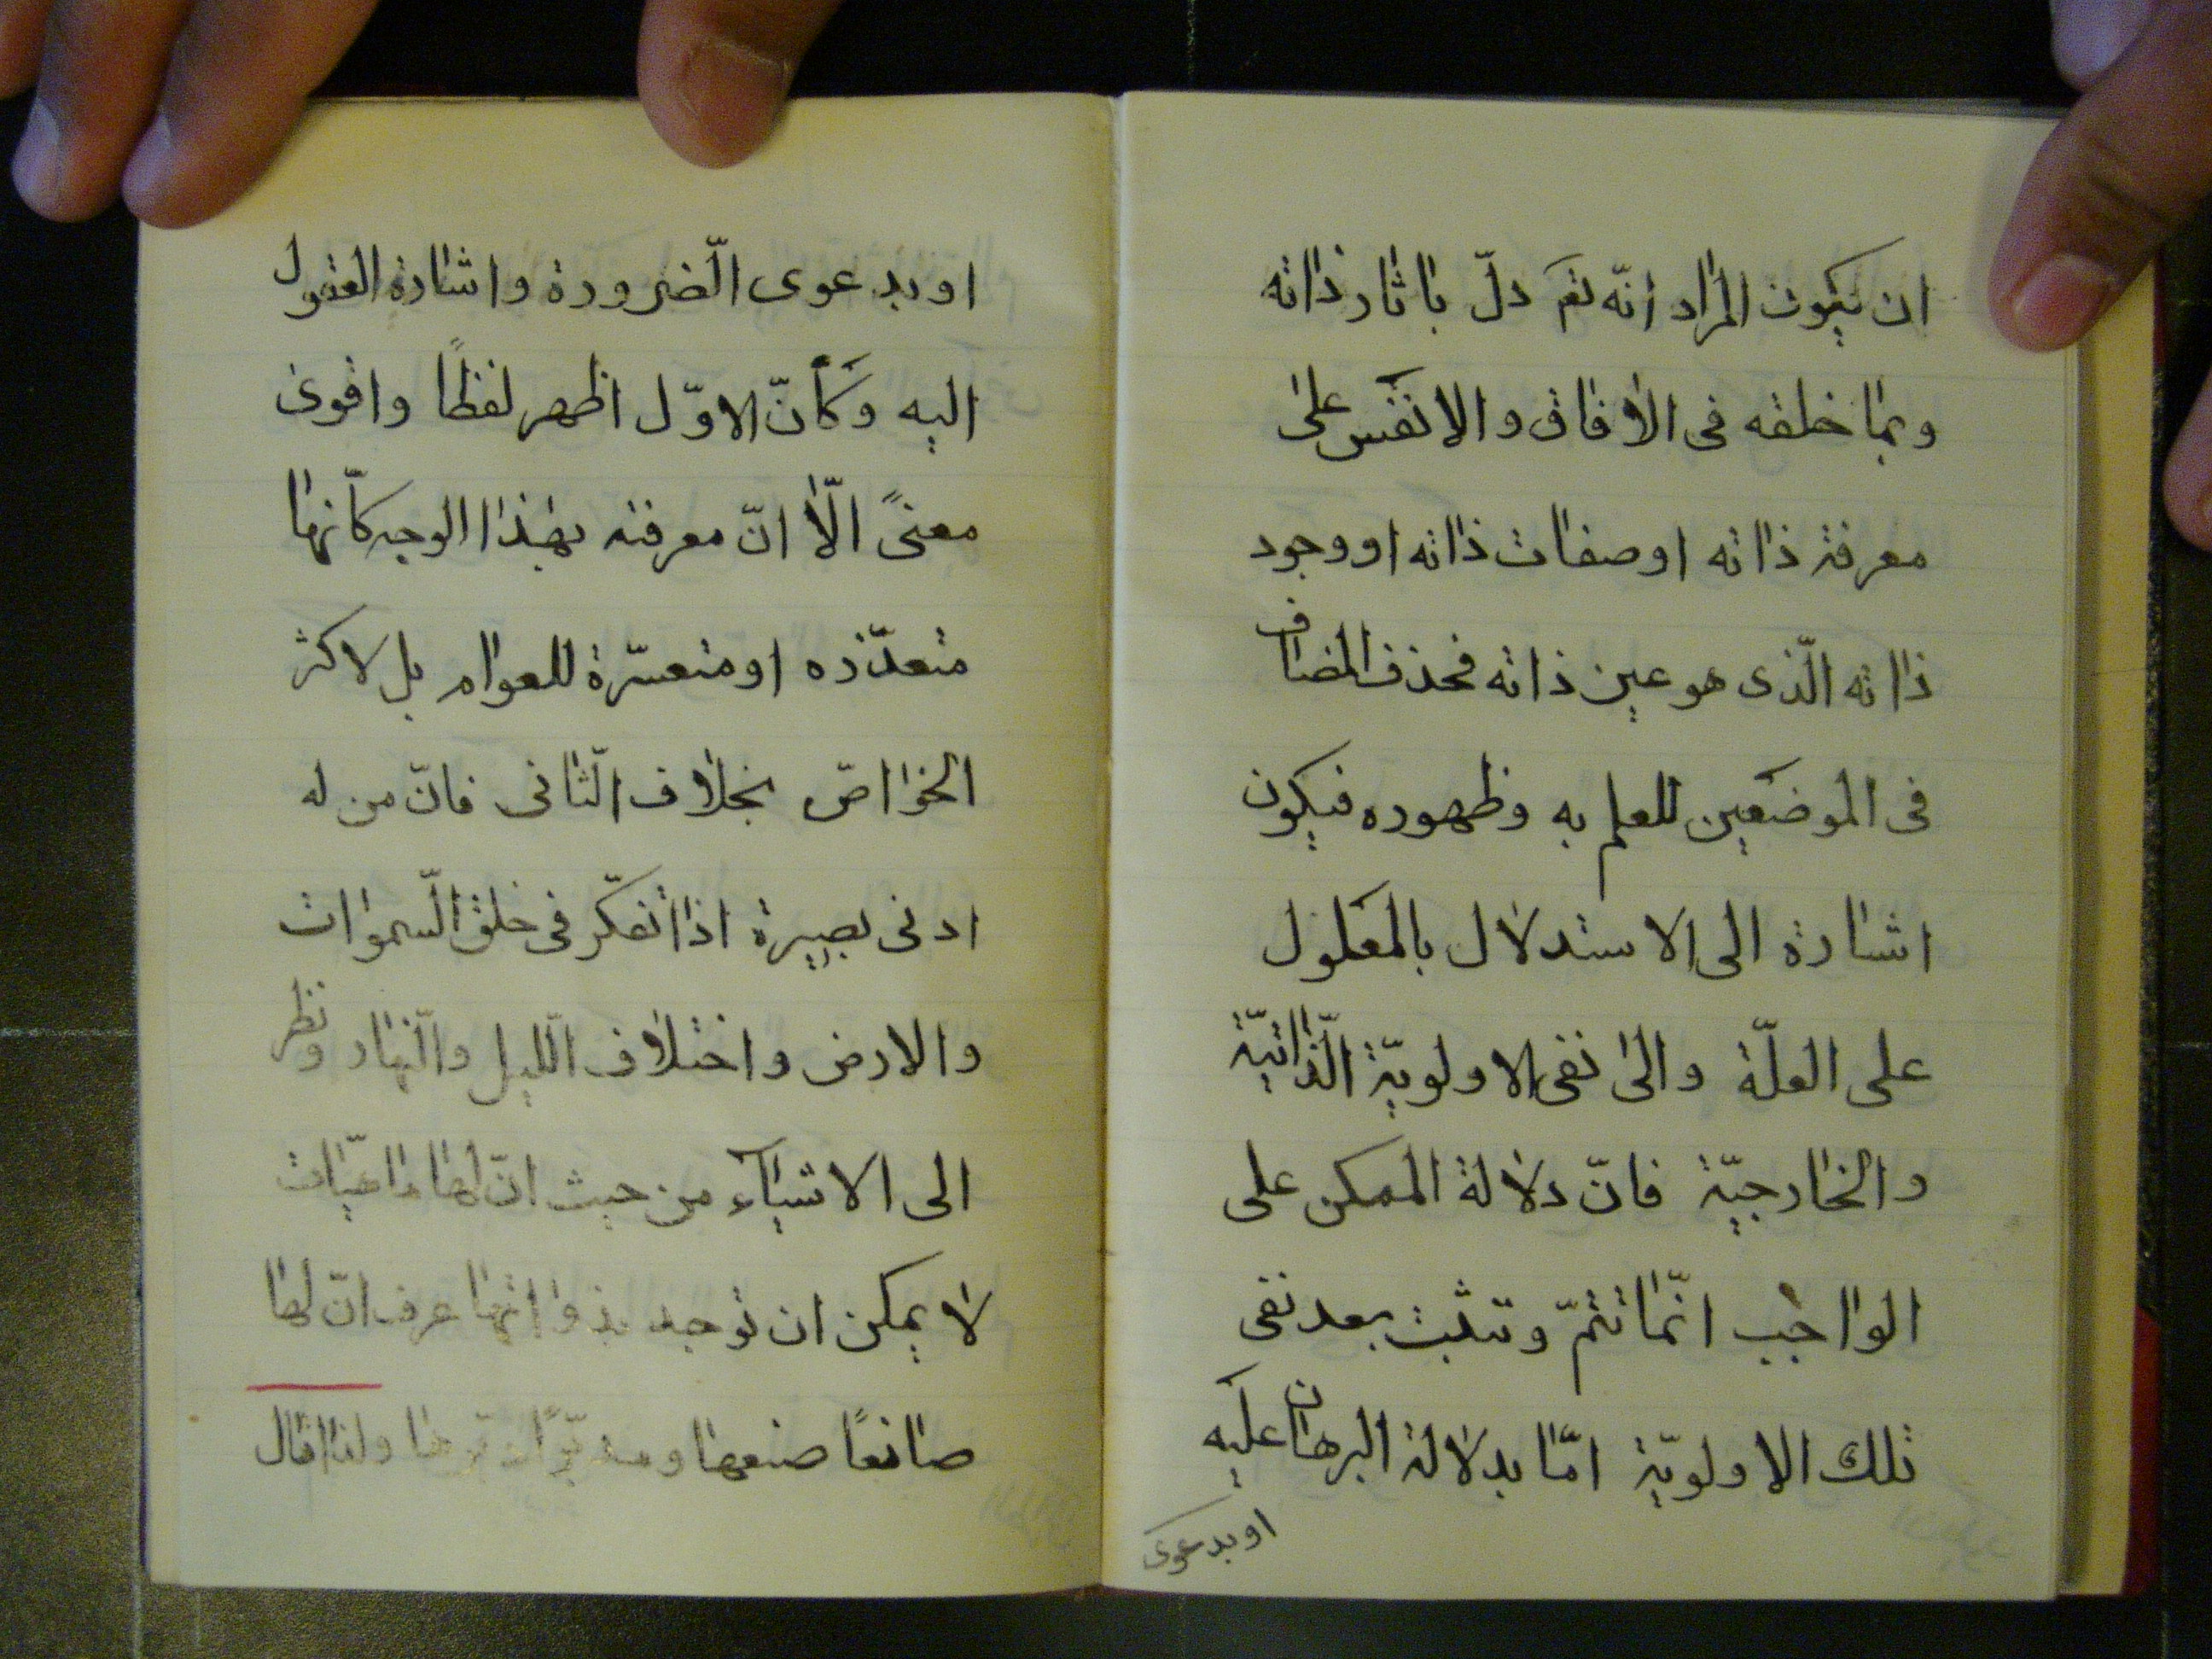 ان يكون المراد انّه تعَ دلّ باثار ذاته
وبما خلقه فى الآفاق والانفس على
معرفة ذاته او صفات ذاته او وجود
ذاته الّذى هو عين ذاته فحذف المضاف
فى الموضعين للعلم به وظهوره فيكون
اشارة الى الاستدلال بالمعلول
على العلّة والى نفى الاولويّة الّذاتيّة
والخارجيّة فانّ دلالة الممكن على
الواجب انّما تتمّ وتثبت بعد نفى
تلك الاولويّة امّا بدلالة البرهان عليه
او بدعوى
او بدعوى الّضرورة واشارة العقول
اليه وكأنّ الاوّل اظهر لفظًا واقوى
معنىً الّا انّ معرفته بهذا الوجه كأنّها
متعذّره او متعسّرة للعوام بل لاكثر
الخواصّ بخلاف الّثانى فانّ من له
ادنى بصيرة اذا تفكّر فى خلق الّسموات
والارض واختلاف الّليل والّنهار ونظر
الى الاشيآء من حيث انّ لها ماهيّات
لا يمكن ان توجد بذواتها عرف انّ لها
صانعًا صنعها ومدبّرًا دبّرها ولذا قال